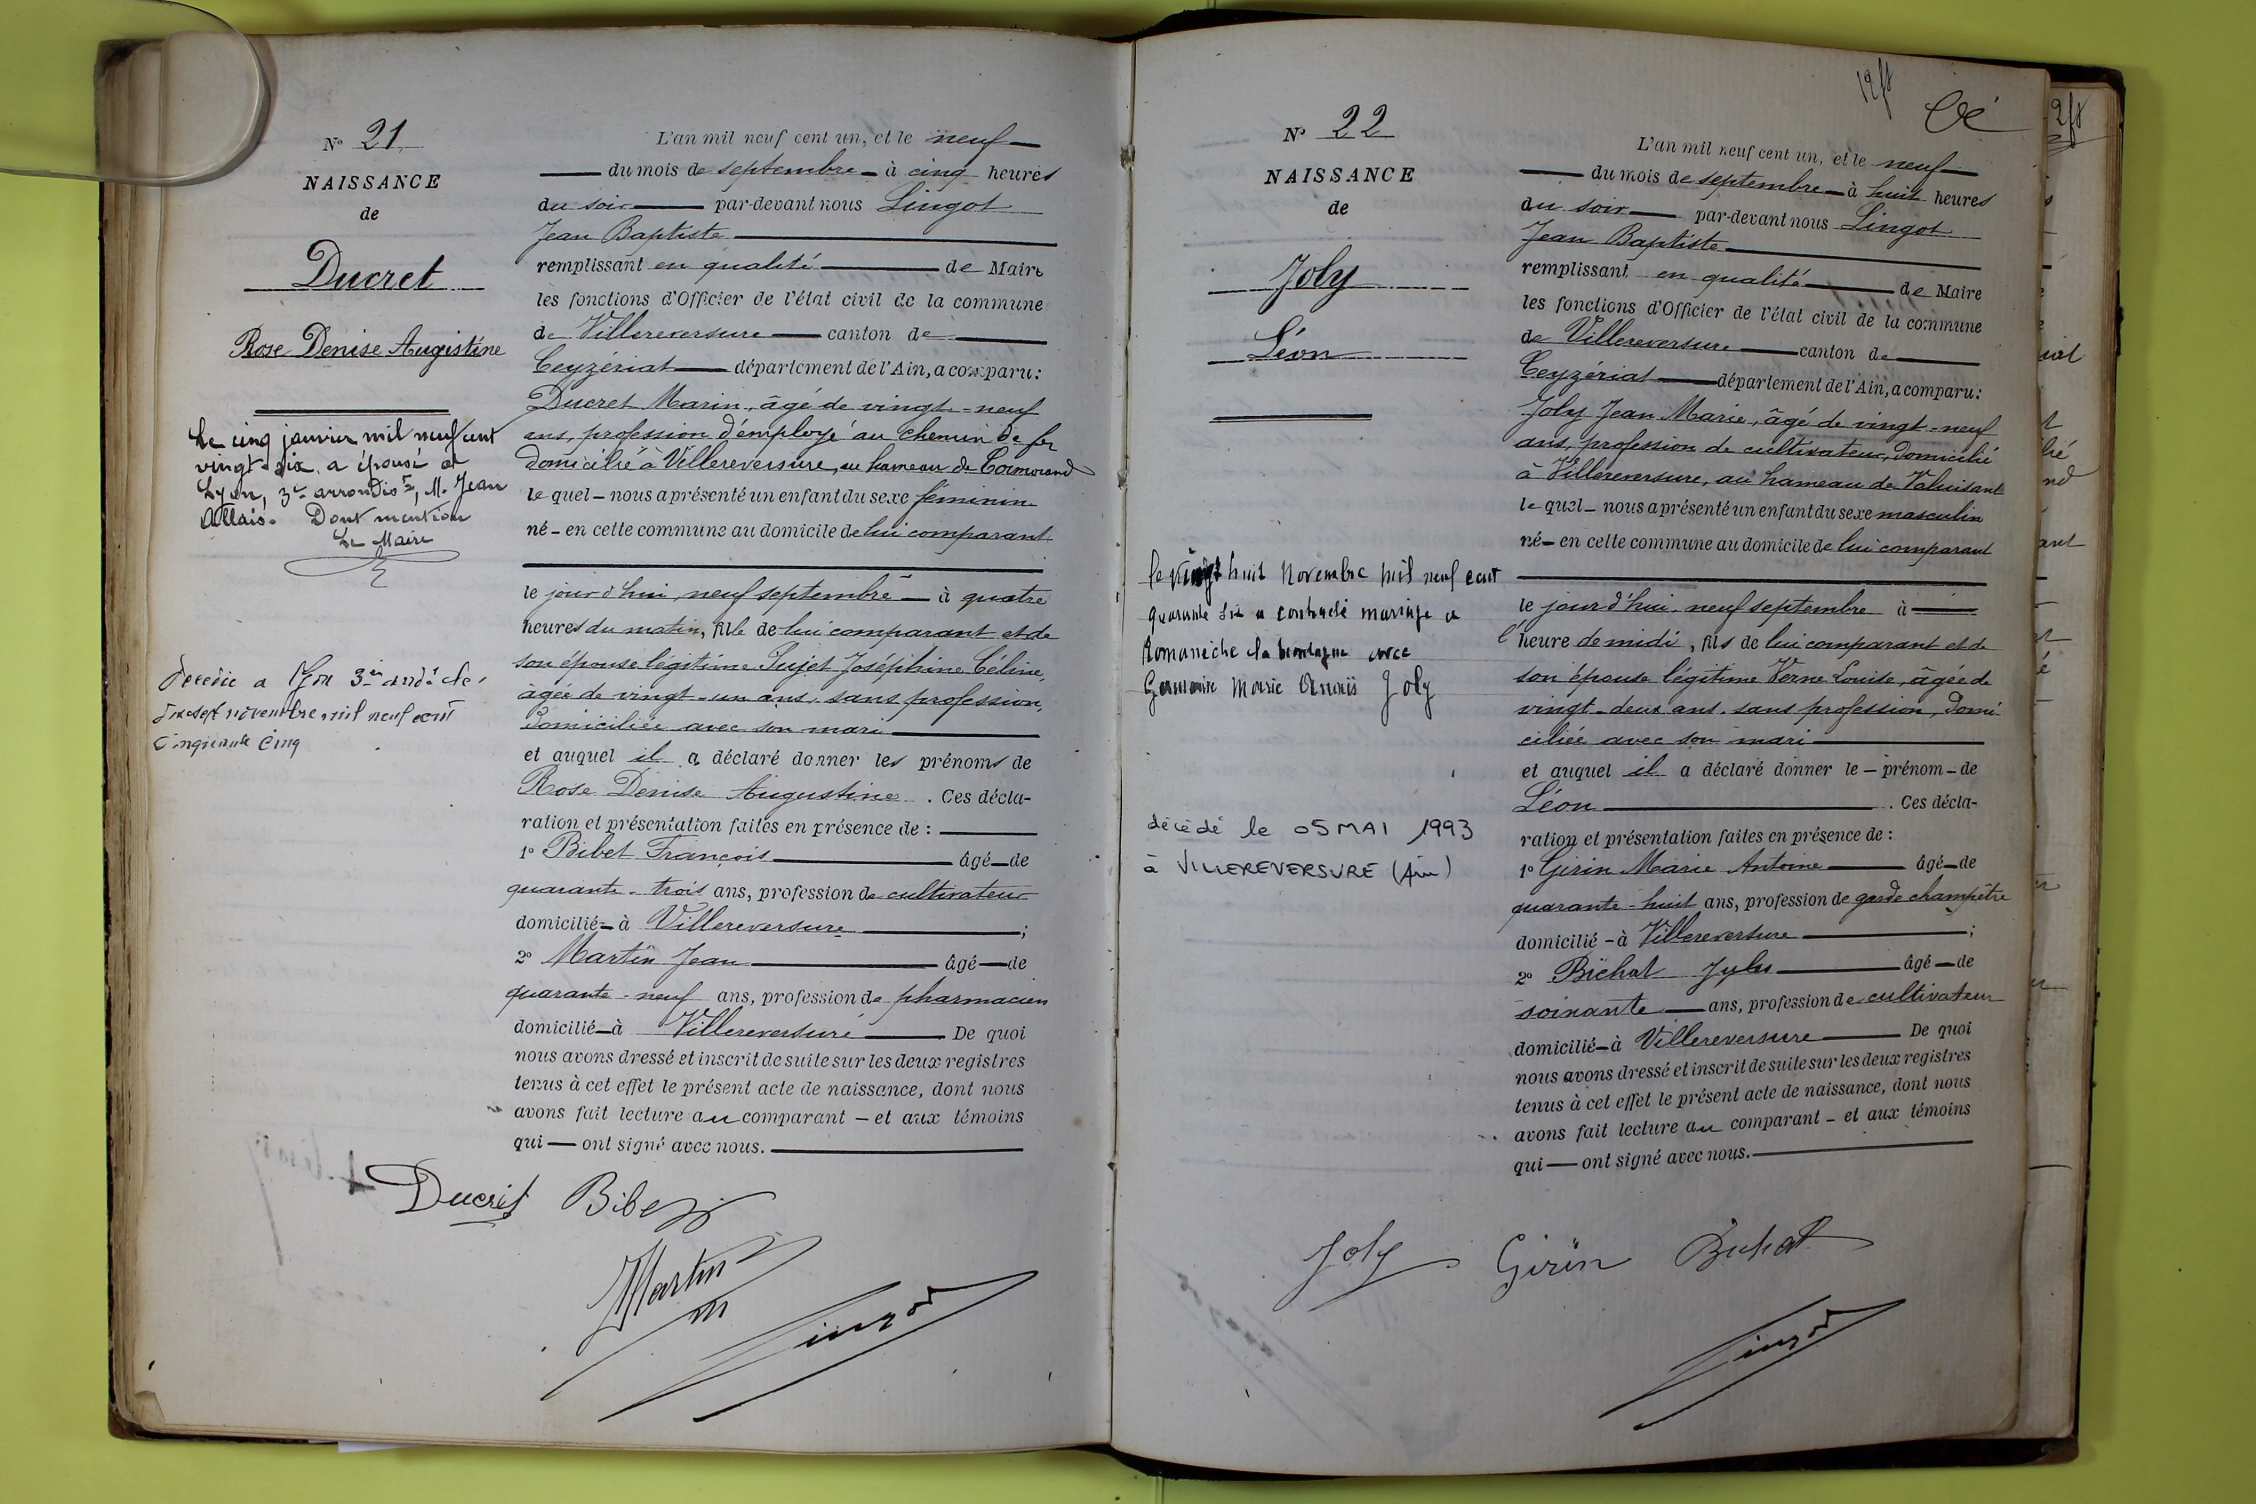 N° 21
NAISSANCE
de
Ducret
Rose Denise Augustine
Le cinq janvier mil neuf cent
vingt-six a épousé à
Lyon, 3e arrondist, M. Jean
Allais. Dont mention
Le Maire
décédée a Lyon 3è
dix sept novembre mil neuf cent
cinquante cinq
L'an mil neuf cent un, et le neuf
du mois de septembre à cinq heures
du soir par-devant nous Lingot
Jean Baptiste
remplissant en qualité de Maire
les fonctions d'Officier de l'état civil de la commune
de Villereversure canton de
Ceyzériat département de l'Ain, a comparu :
Ducret Marin, âgé de vingt-neuf
ans, profession d'employé au chemin de fer
domicilié à Villereversure, au hameau de Cormorand
le quel - nous a présenté un enfant du sexe féminin
né - en cette commune au domicile de lui comparant
le jour d'hui neuf septembre à quatre
heures du matin, fille de lui comparant et de
son épouse légitime Sujet Joséphine Céline,
âgée de vingt-un ans, sans profession,
domiciliée avec son mari
et auquel il a déclaré donner les prénoms de
Rose Denise Augustine. Ces décla-
ration et présentation faites en présence de :
1° Bibet François âgé de
quarante-trois ans, profession de cultivateur
domicilié - à Villereversure ;
2° Martin Jean âgé de
quarante-neuf ans, profession de pharmacien
domicilié - à Villereversure De quoi
nous avons dressé et inscrit de suite sur les deux registres
tenus à cet effet le présent acte de naissance, dont nous
avons fait lecture au comparant - et aux témoins
qui ont signé avec nous.
Ducret Bibet
Martin
Lingot
12 f8
N° 22
NAISSANCE
de
Joly
Léon
le vingt huit Novembre mil neuf cent
quarante six a contracté mariage a
Romanèche la Montagne avec
Germaine Marie Anaïs Joly
décédé le 05 MAI 1993
à VILLEREVERSURE (Ain)
L'an mil neuf cent un, et le neuf
du mois de septembre à huit heures
du soir par-devant nous Lingot
Jean Baptiste
remplissant en qualité de Maire
les fonctions d'Officier de l'état civil de la commune
de Villereversure canton de
Ceyzériat département de l'Ain, a comparu :
Joly Jean Marie, âgé de vingt-neuf
ans, profession de cultivateur, domicilié
à Villereversure, au hameau de Valuisant
le quel - nous a présenté un enfant du sexe masculin
né - en cette commune au domicile de lui comparant
le jour d'hui neuf septembre à
l'heure de midi, fils de lui comparant et de
son épouse légitime Verne Louise, âgée de
vingt-deux ans, sans profession, domi-
ciliée avec son mari
et auquel il a déclaré donner le - prénom - de
Léon. Ces décla-
ration et présentation faites en présence de :
1° Girin Marie Antoine âgé de
quarante-huit ans, profession de garde champêtre
domicilié - à Villereversure ;
2° Bichat Jules âgé de
soixante ans, profession de cultivateur
domicilié - à Villereversure De quoi
nous avons dressé et inscrit de suite sur les deux registres
tenus à cet effet le présent acte de naissance, dont nous
avons fait lecture au comparant - et aux témoins
qui ont signé avec nous.
Joly Girin Bichat
Lingot